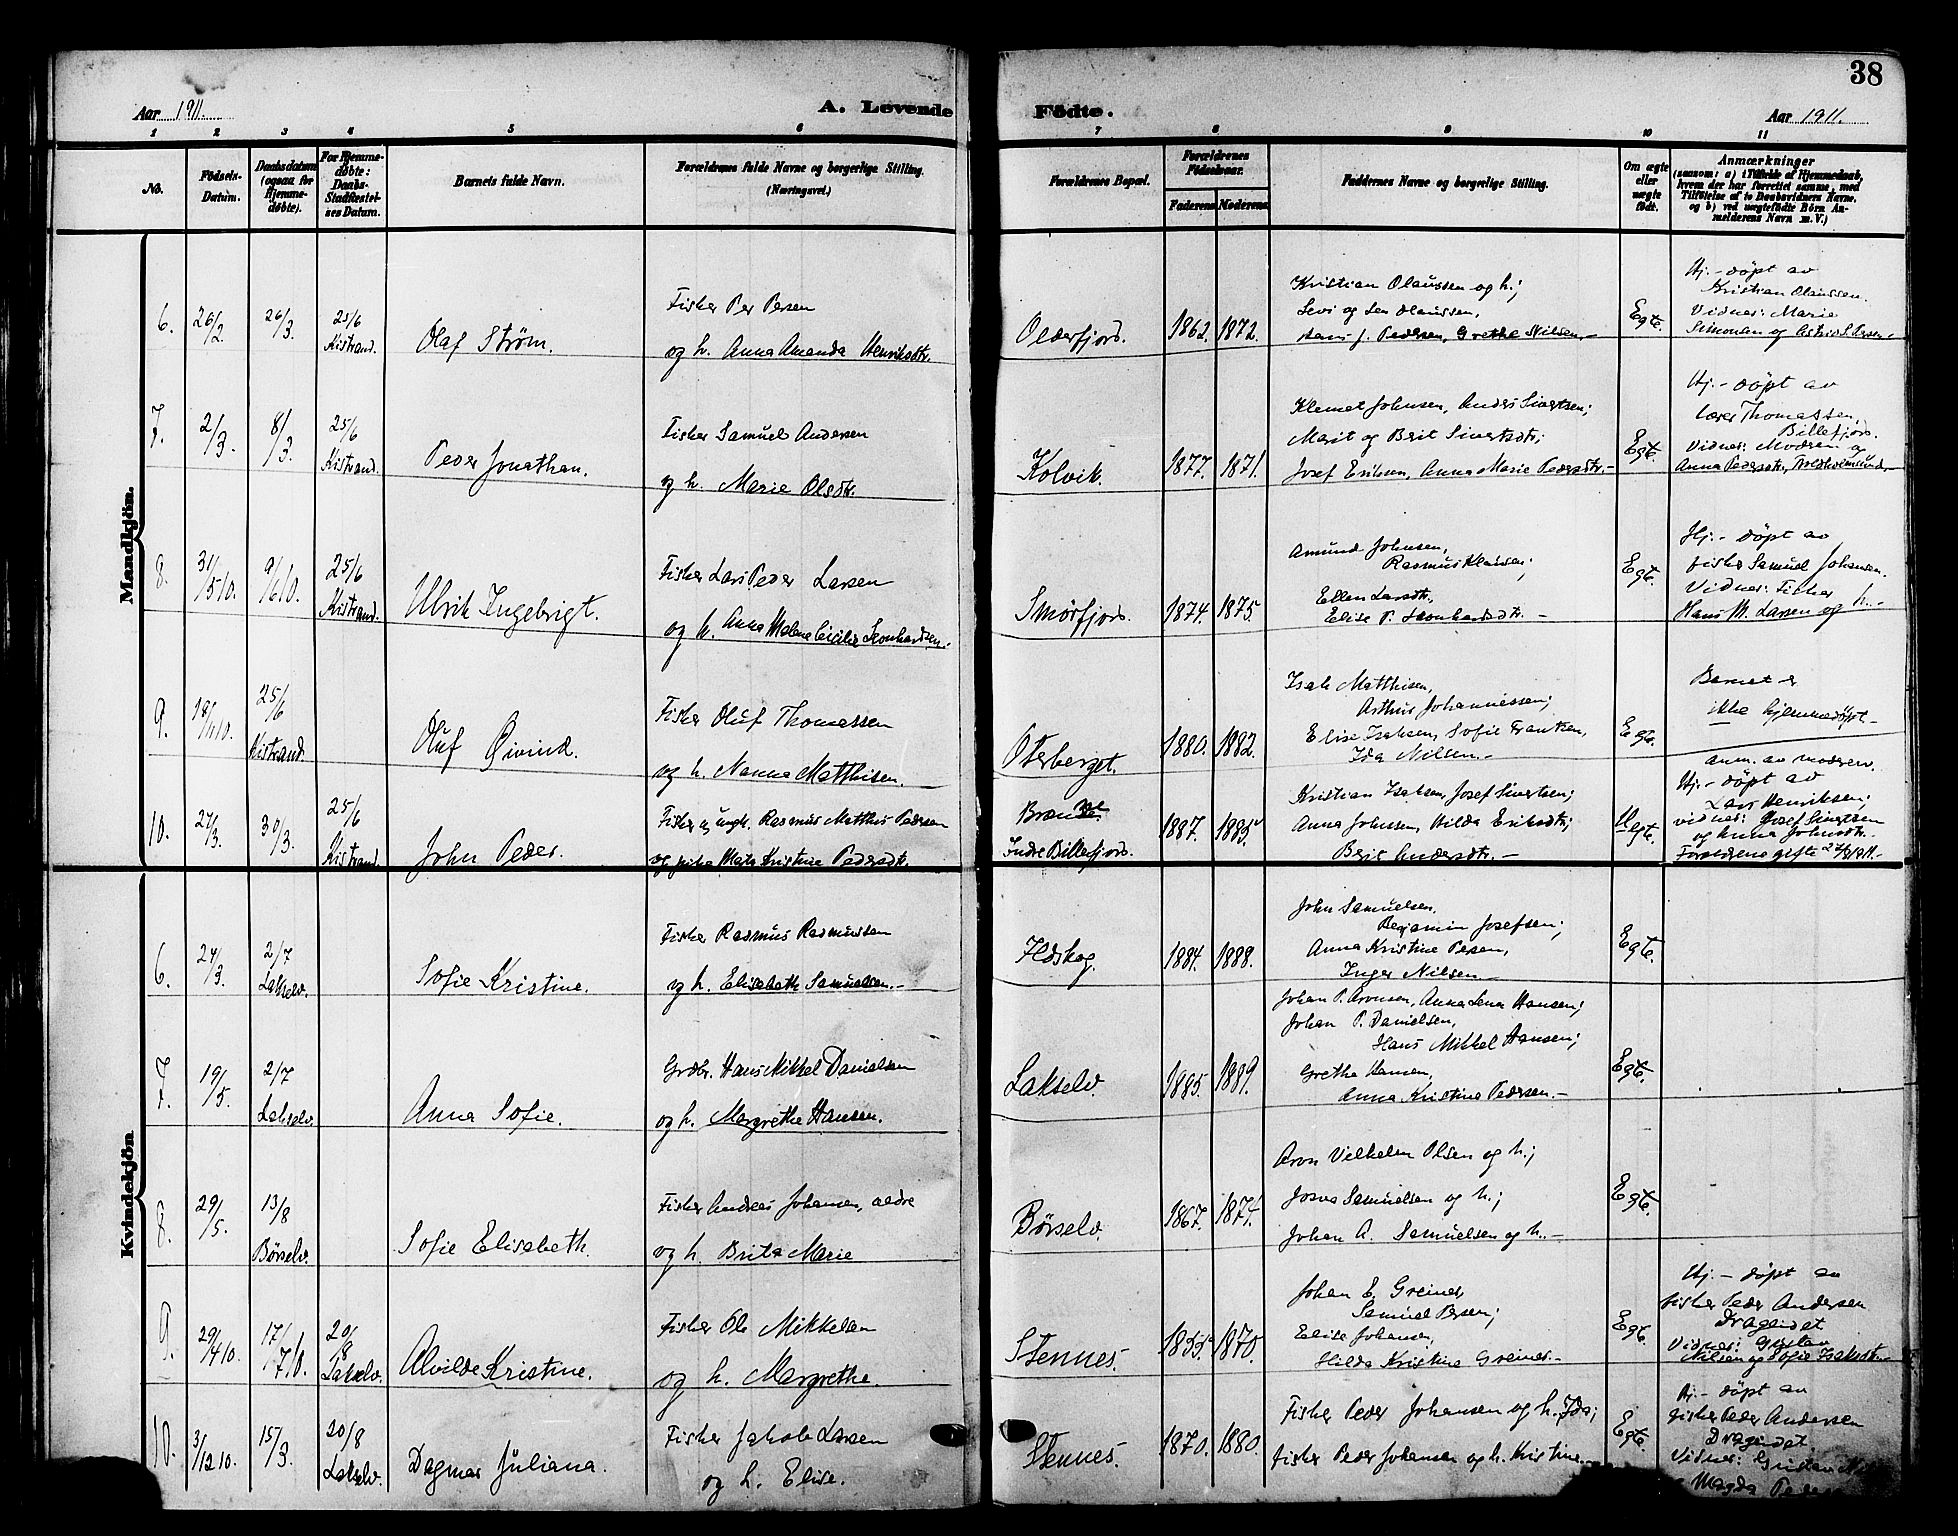 38
Aar 1911.
A. Levende Födte.
Aar 1911.
1 2 3 4 5 6 7 8 9 10 11
No.
Födsels-Datum.
Daabsdatum (ogsaa for Hjemme-døbte).
For Hjemme-døbte: Daabs-Stadfæstel-ses Datum.
Barnets fulde Navn.
Forældrenes fulde Navne og borgerlige Stilling. (Næringsvei.)
Forældrenes Bopæl.
Forældrenes Födselsaar.
Faderens Moderens
Faddernes Navne og borgerlige Stilling.
Om ægte eller uægte født.
Anmærkninger
(saasom: a) i Tilfælde af Hjemmedaab,
hvem der har forrettet samme, med
Tilföielse af to Daabsvidners Navne,
og b) ved uægtefødte Börn An-
melderens Navn m. V.)
Mandkjön.
6. 26/2 26/3 25/6 Kistrand.
Olaf Strøm.
Fisker Per Persen
og h. Anna Amanda Henriksdtr.
Olderfjord. 1862. 1872.
Kristian Olaussen og h.;
Levi og Olaussen,
Hans J. Pedersen, Grethe Nilsen.-
Egte.
Hj.- døpt av
Kristian Olaussen.
Vidner: Marie
Simonsen og
7. 2/3. 8/3. 25/6 Kistrand.
Peder Jonathan.
Fisker Samuel Andersen
og h. Marie Olsdtr.
Kolvik. 1877. 1871.
Klemet Johnsen, Anders Sivertsen;
Marit og Brit Sivertsdtr;
Josef Eriksen, Anna Marie Pedersdtr.-
Egte.
Hj.- døpt av
lærer Thomassen,
Billefjord.
Vidner: Modren og
Anna Pedersdtr,
8. 31/5 10. 9/6 10. 25/6 Kistrand.
Ulrik Ingebrigt.
Fisker Lars Peder Larsen
og h. Anna Malene Cecilie Leonhardsen.
Smørfjord. 1874. 1875.
Amund Johnsen,
Rasmus Klausen;
Ellen Larsdtr,
Elise P. Leonhardsdtr.-
Egte.
Hj.- døpt av
fisker Samuel Johansen.
Vidner: Fisker
Hans M. Larsen og h.-
9. 18/11 10. 25/6 Kistrand.
Oluf Øivind.
Fisker Oluf Thomassen
og h. Nanna Matthisen.
Oterberget. 1880. 1882.
Isak Matthisen,
Arthur Johannessen;
Elise Isaksen, Sofie Frantzen,
Ida Nilsen.-
Egte.
Barnet er
ikke hjemmedøpt-
anm. av modren.
10. 27/3. 30/3. 25/6 Kistrand.
John Peder.
Fisker og ungk. Rasmus Matthis Pedersen
og pike Kristine Pedersdtr.
Indre Billefjord. 1887. 1885
Kristian Isaksen, Josef Sivertsen;
Anna Johnsen, Hilda Eriksdtr;
Berit Andersdtr.-
Uegte.
Hj.- døpt av
Lars Henriksen;
vidner: Josef Sivertsen
og Anna Johnsdtr.
Forældrene gifte 27/8 1911.-
Kvindekjön
6. 24/3. 2/7 Lakselv.
Sofie Kristine.
Fisker Rasmus Rasmussen
og h. Elisabeth Samuelsen.-
Ildskog. 1884. 1888.
John Samuelsen,
Benjamin Josefsen;
Anna Kristine Persen,
Inger Nilsen-
Egte.
7. 19/5. 2/7 Lakselv.
Anna Sofie.
Grdbr. Hans Mikkel Danielsen
og h. Margrethe Hansen.
Lakselv 1885. 1889.
Johan P. Aronsen, Anna Lena Hansen;
Johan P. Danielsen,
Hans Mikkel Hansen;
Grethe Hansen,
Anna Kristine Pedersen.-
Egte.
8. 29/5. 13/8 Børselv.
Sofie Elisabeth.
Fisker Andreas Johansen, ældre
og h. Brita Marie
Børselv. 1867. 1874.
Aron Vilhelm Olsen og h.;
Josva Samuelsen og h.;
Johan A. Samuelsen og h.-
Egte.
9. 29/4 10. 17/7 10. 20/8 Lakselv.
Alvilde Kristine.
Fisker Ole Mikkelsen
og h. Margrethe.
Stennes. 1855. 1870.
Johan E. Greiner,
Samuel Persen;
Elise Johansen,
Hilda Kristine Greiner.-
Egte.
Hj.- døpt av
fisker Peder Andersen
Drageidet
Vidner: Gustav
Nilsen og Sofie Isaksdtr.-
10. 3/12 10. 15/3. 20/8 Lakselv.
Dagmar Juliana.
Fisker Jakob Larsen
og h. Elise.
Stennes. 1870. 1880.
Fisker Peder Johansen og h. Ida;
fisker Peder Johansen og h. Kristine.-
Egte.
Hj.- døpt av
fisker Peder Andersen
Drageidet.
Vidner:
Magda